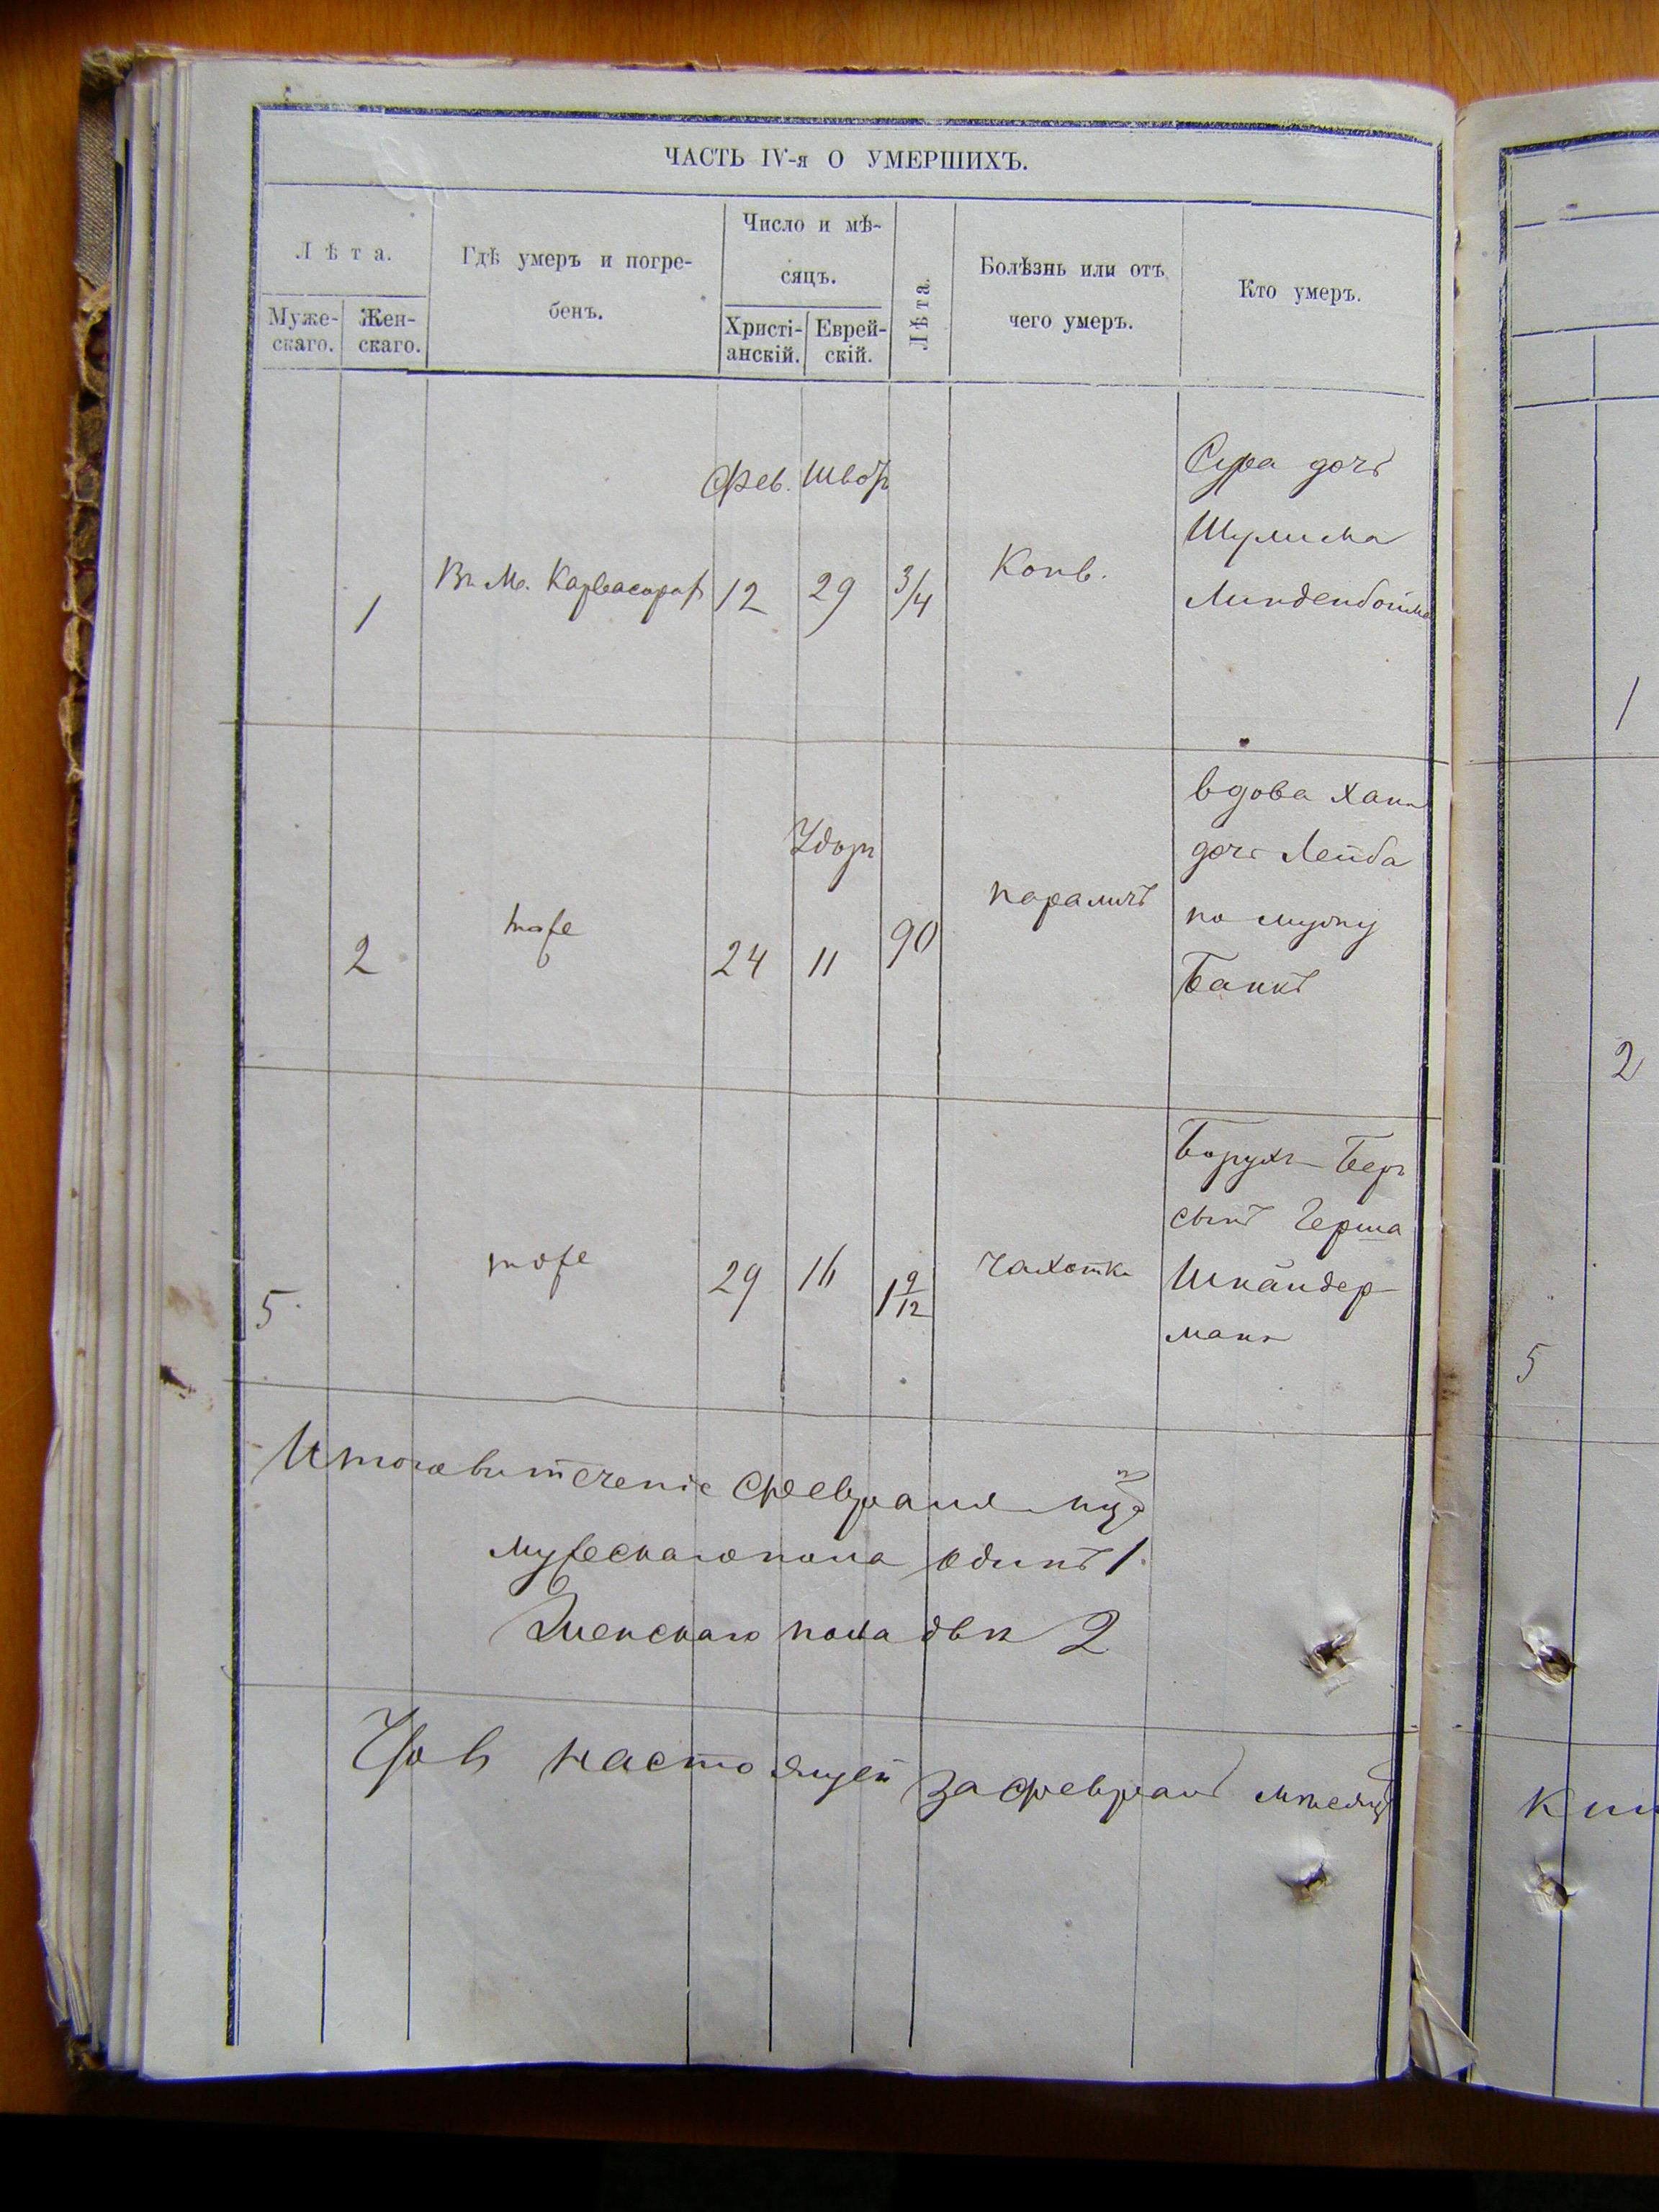 ЧАСТЬ IV-я О УМЕРШИХЪ.
Лѣта.
Муже-
скаго.
Жен-
скаго.
Гдѣ умеръ и погре-
бенъ.
Число и мѣ-
сяцъ.
Христі-
анскій.
Еврей-
скій.
Лѣта.
Болѣзнь или отъ
чего умеръ.
Кто умеръ.
1
Въ М.
Фев.
12
29
3/4
Конв.
Сура дочь
Шулима
Линденбойма
2
тоже
24
11
90
параличъ
вдова Хана
дочь Лейба
по мужу
Банкъ
5
тоже
29
16
1 9/12
Чахотка
Борухъ-Беръ
сынъ Герша
Шпандер-
мана
Итого въ теченіе Февраля
мужескаго пола одинъ 1.
Женскаго пола двѣ 2
настоящей за февраль мѣсяцъ
1
2
5